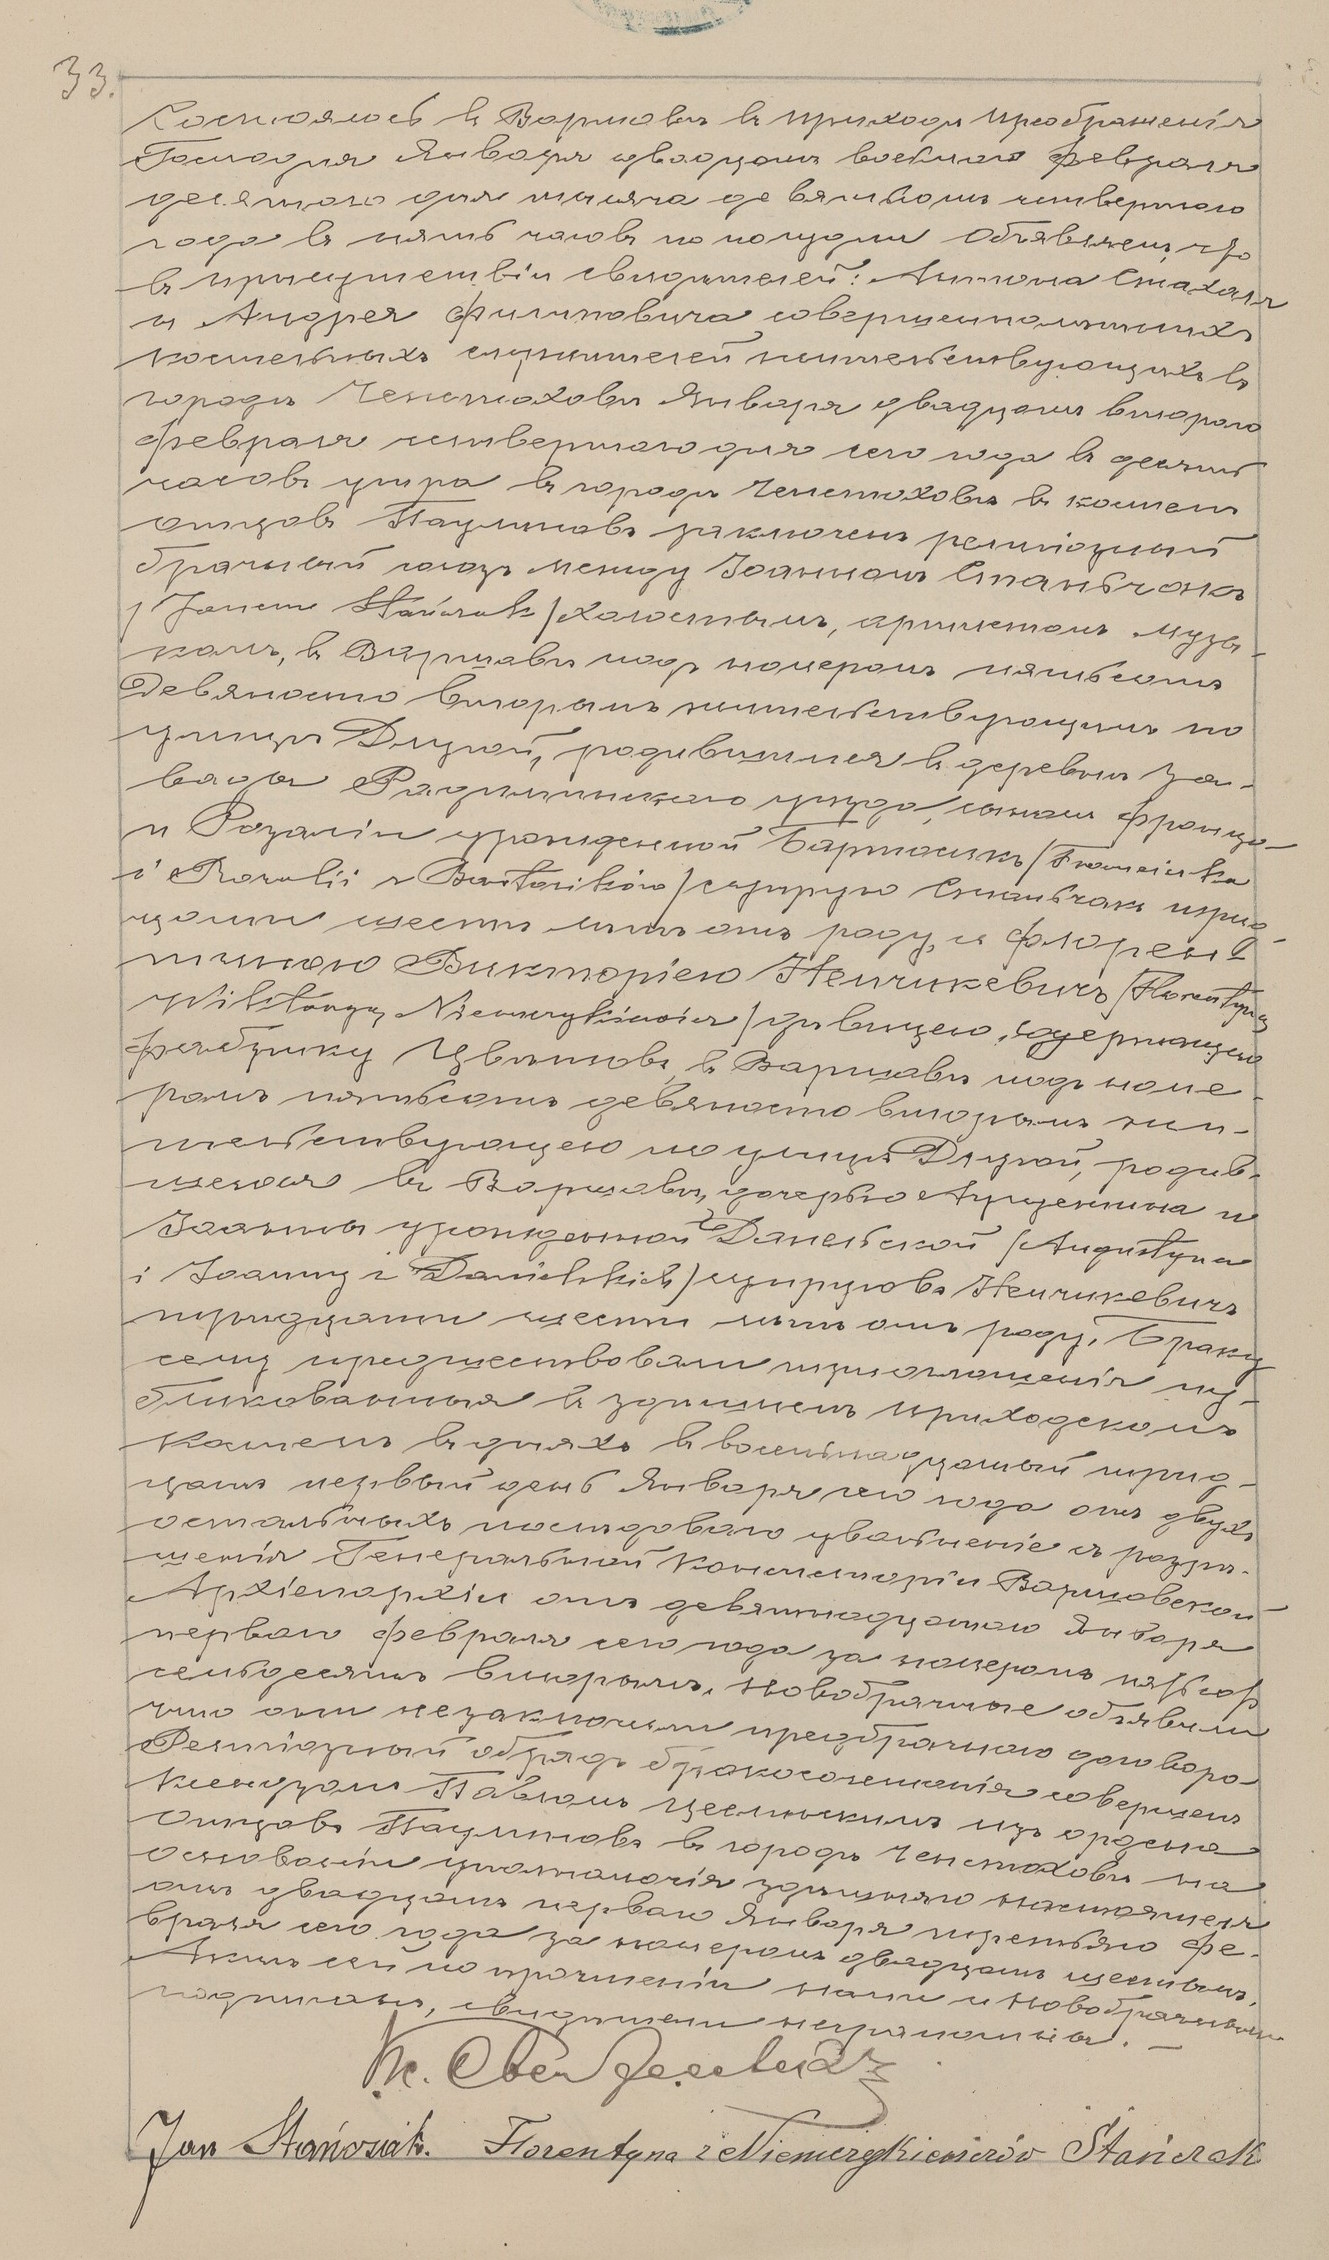 33.
Состоялось въ Варшавѣ въ приходѣ Преображенія
Господня Января двадцать восьмого Февраля
десятого дня тысяча девятьсотъ четвертого
года въ пять часовъ по полудни Объявляемъ, что
въ присутствіи свидѣтелей: Антона Стахаля
и Андрея Филиповича совершеннолѣтнихъ
костельныхъ служителей жительствующихъ въ
городѣ Ченстоховѣ Января двадцать второго
Февраля четвертого дня сего года въ десять
часовъ утра въ городѣ Ченстоховѣ въ костелѣ
отцовъ Паулиновъ заключенъ религіозный
брачный союзъ между Іоанномъ Станьчакъ
/Janem Stańczak/ холостымъ, артистомъ музы-
комъ, въ Варшавѣ подъ номеромъ пятьсотъ
девяносто вторымъ жительствующимъ по
улицѣ Длугой, родившимся въ деревнѣ За-
вады Радиминскаго уѣзда, сыномъ Францa
и Розаліи урожденной Бартосикъ /Franciszka
i Rozalii z Bartosików/ супруговъ Станьчакъ трид-
цати шести лѣтъ отъ роду, и Флорен-
тиною Викторіею Немчикевичъ /Florentyną
Wiktoryą Niemczykiewicz/ дѣвицею, содержащею
фабрику Цвѣтовъ, въ Варшавѣ подъ номе-
ромъ пятьсотъ девяносто вторымъ жи-
тельствующею по улицѣ Длугой, родив-
шеюся въ Варшавѣ, дочерью Августина и
Іоанны урожденной Даньельской /Augustyna
i Joanny z Danielskich/ супруговъ Немчикевичъ
тридцати шести лѣтъ отъ роду. Браку
сему предшествовали три оглашенія пу-
бликованныя въ здѣшнемъ приходскомъ
Костелѣ въ дняхъ въ восемнадцатый трид-
цать первый день Января сего года отъ двухъ
остальныхъ послѣдовало увольненіе съ разрѣ-
шенія Генеральной Консисторіи Варшавской
Архіепархіи отъ девятнадцатого Января
перваго Февраля сего года за номеромъ пятьсотъ
семьдесятъ вторымъ. Новобрачные объявили
что они незаключили предбрачнаго договора
Религіозный обрядъ бракосочетанія совершенъ
Ксендзомъ Павломъ изъ ордена
Отцовъ Паулиновъ въ городѣ Ченстоховѣ на
основаніи уполномочія здѣшняго настоятеля
отъ двадцать перваго Января третьяго Фе-
враля сего года за номеромъ двадцать шестымъ.
Актъ сей по прочтеніи нами и новобрачными
подписанъ, свидѣтели неграмотны. —
Jan Stańczak. Florentyna z Niemczykiewiczów Stańczak